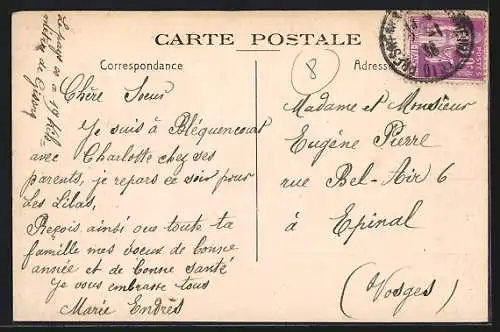 CARTE POSTALE
Correspondance
Adresse
8
POSTES
Chère Soeur
Je suis à Bléquencourt
avec Charlotte chez ses
parents, je repars ce soir pour
Les Lilas,
Reçois ainsi que toute ta
famille mes voeux de bonne
année et de bonne santé
Je vous embrasse tous
Marie Endrès
Madame et Monsieur
Eugène Pierre
rue Bel-Air 6
à Epinal
(Vosges)
a 19 Kil
de Gisors